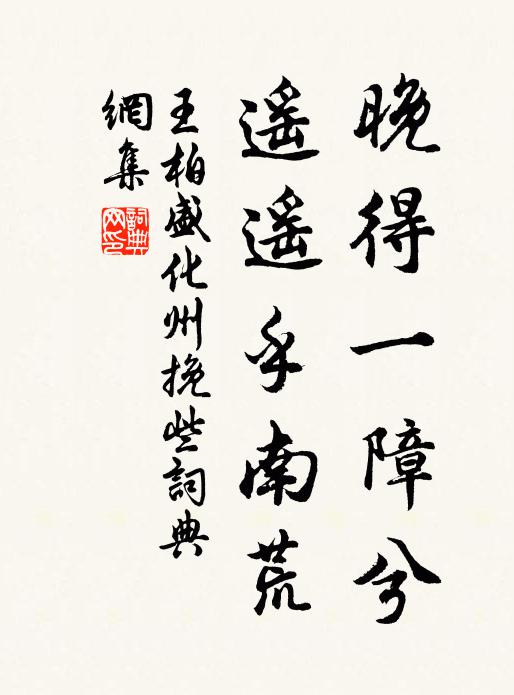 晚得一障兮
遥遥乎南荒
王柏盛化州挽些詞典
網集
詞典
网印